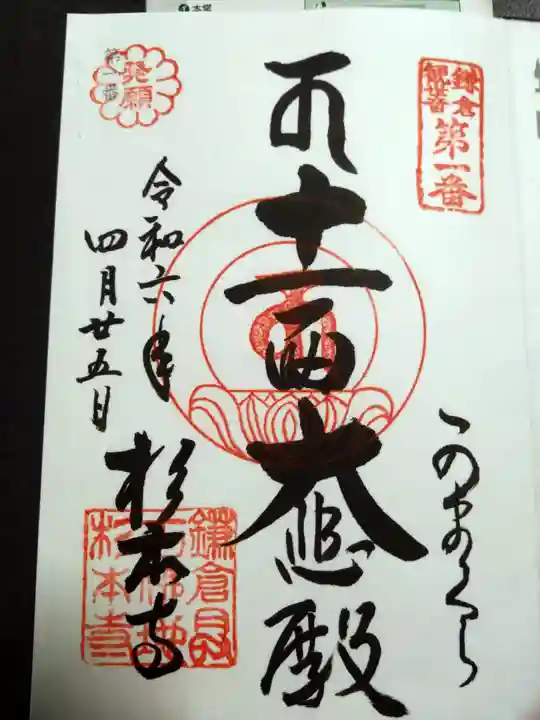 本堂
鎌倉
観世音
第一番
かまくら
十一面大悲殿
発願
第一番
令和六年
四月廿五日
杉本寺
杉本寺